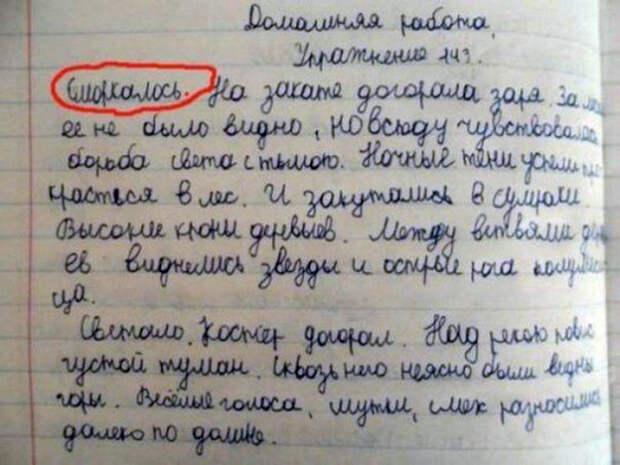 Домашняя работа,
Упражнение 143.
Сморкалось. На закате догорала заря. За
ее не было видно, но всюду чувствовалас
борьба света с тьмою. Ночные тени успели про
красться в лес. И закутались в сумраки.
Высокие крони деревьев. Между ветвями дер
ев виднелись звезды и острые рога
ца.
Светало. Костёр догорал. Над рекою повис
густой туман. Сквозь него неясно были видны
горы. Весёлые голоса, шутки, смех разносились
далеко по долине.